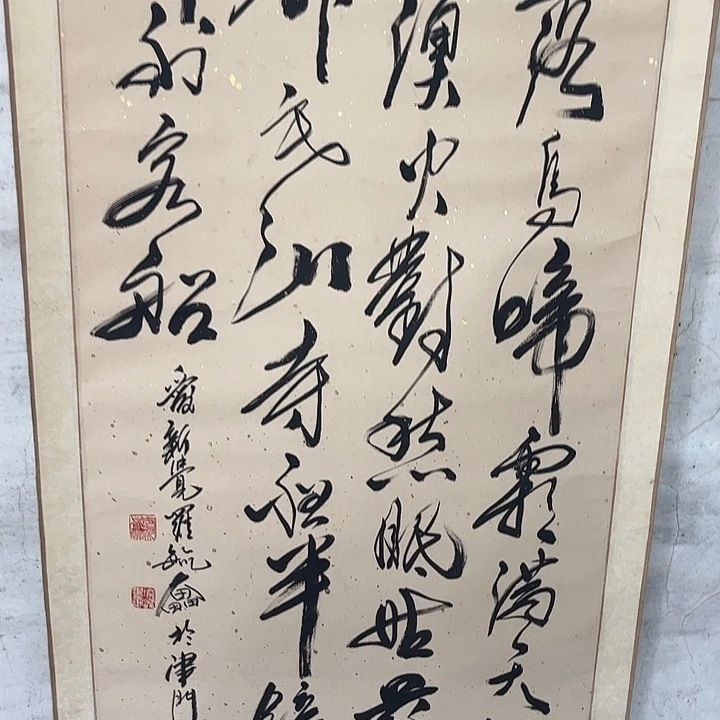 落烏啼霜滿天
漁火對愁眠姑蘇
外寒山寺夜半鐘
到客船
愛新覺羅毓 於津門